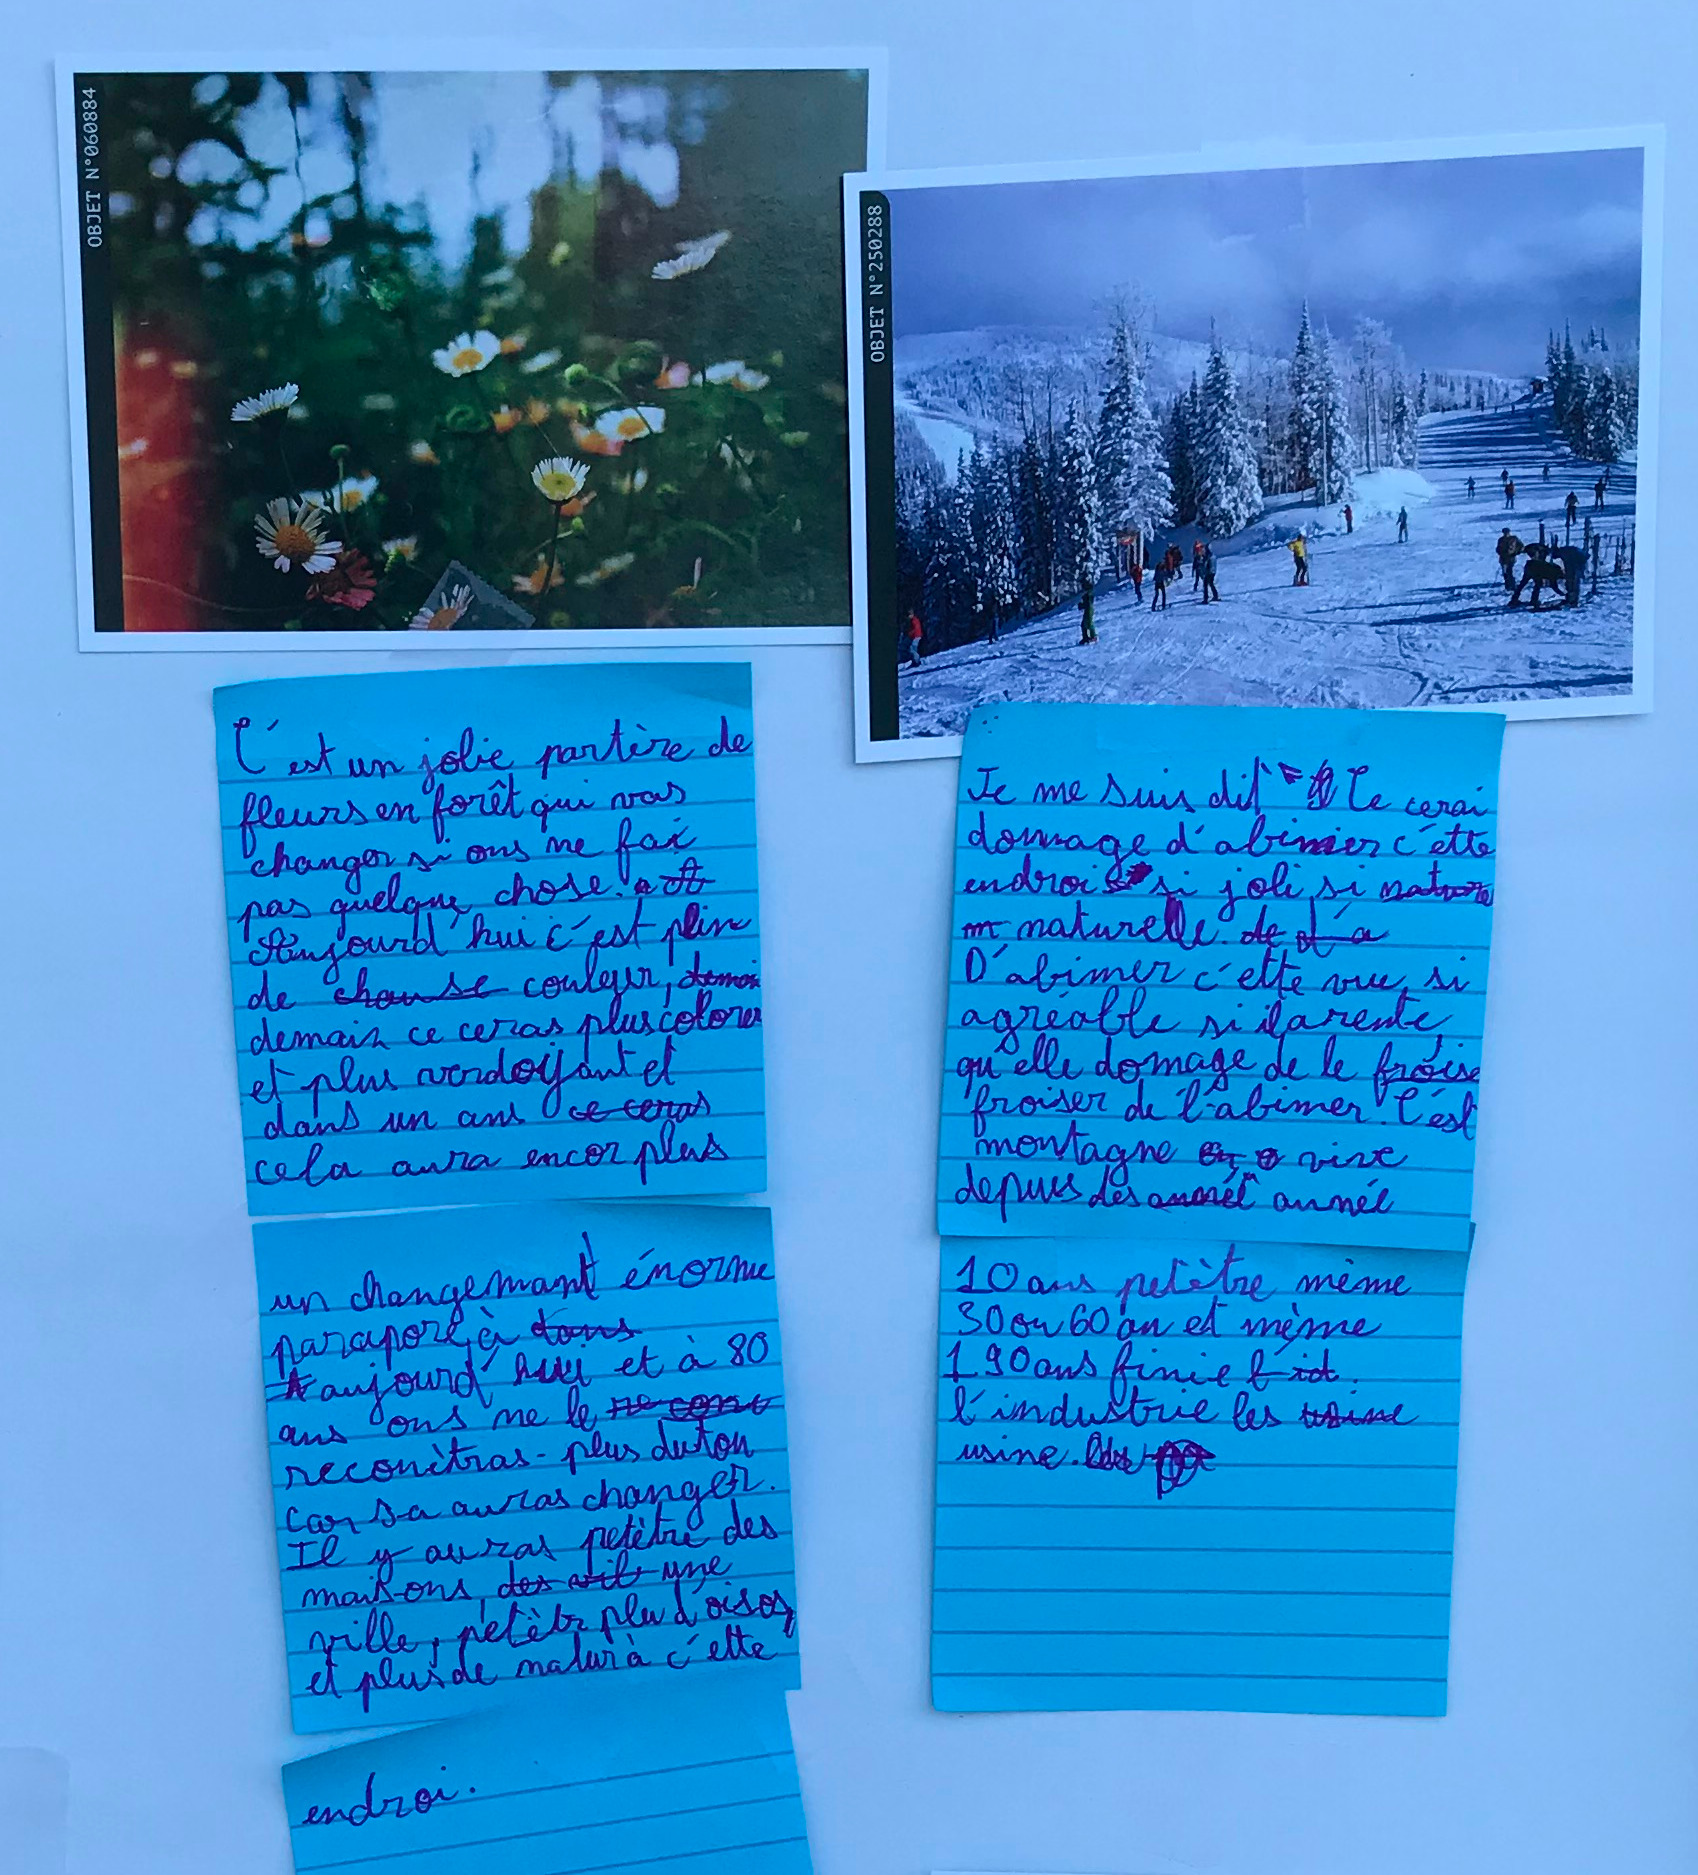 OBJET N°060884
C'est un jolie partère de
fleurs en forêt qui vas
changer si ons ne fai
pas quelque chose.
Aujourd'hui c'est plin
de chause couleur, demain
demain ce ceras plus colorer
et plus verdoyant et
dans un ans ce ceras
cela aura encor plus
un changemant énorme
paraporé à dans
aujourd'hui et à 80
ans ons ne le
reconètras-plus duton
car sa auras changer.
Il y auras petètre des
maisons, des vil une
ville, petètr plu d'oisos
et plus de natur à c'ette
endroi.
OBJET N°250288
Je me suis dit Ce cerai
domage d'abimer c'ette
endroi si joli, si nature
naturelle. de d'a
D'abimer c'ette vue, si
agréable si ilarente
qu'elle domage de le froise
froiser de l'abimer. C'est
montagne vive
depuis des année année
10 ans petètre mème
30 ou 60 an et mème
190 ans finie
l'industrie les usine
usine.